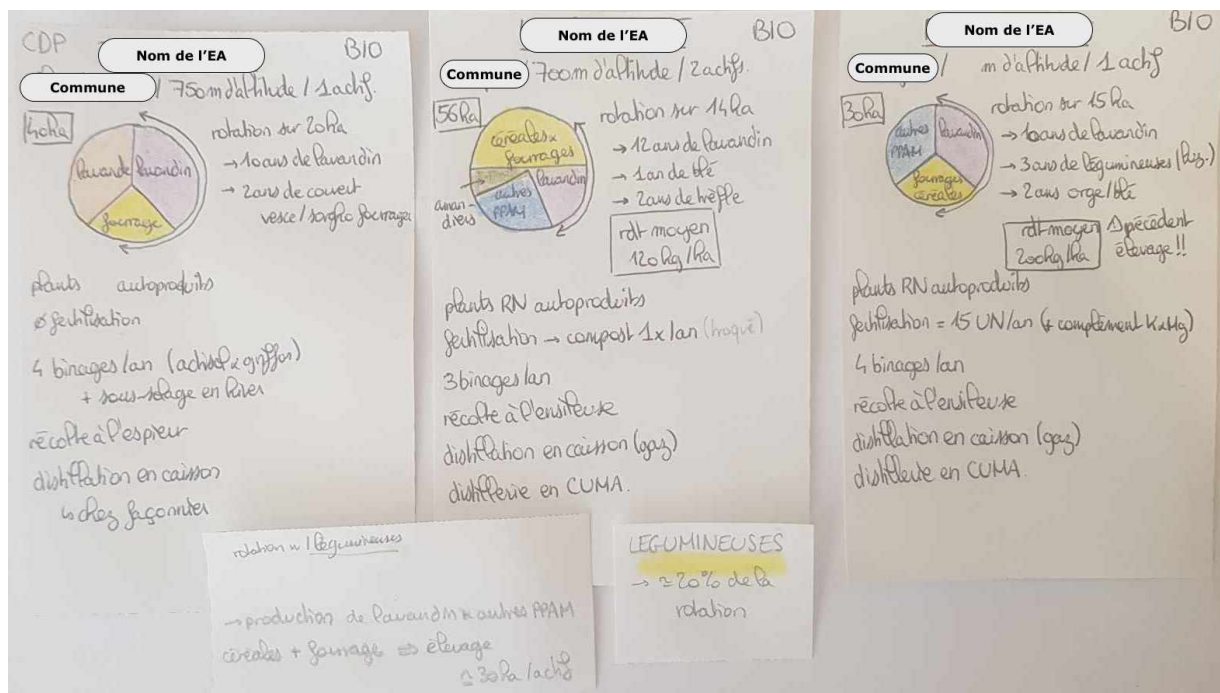 CDP
Nom de l'EA
BIO
Commune
/ 750m d'altitude / 1 actif.
40ha
lavande
lavandin
fourrage
rotation sur 20ha
→ 10 ans de lavandin
→ 2 ans de couvert
vesce/sorgho fourrager
plants autoproduits
ø fertilisation
4 binages/an (actisol x griffon)
+ sous-solage en hiver
récolte à l'espieur
distillation en caisson
↳ chez façonnier
Nom de l'EA
BIO
Commune
/ 700m d'altitude / 2 actifs.
56ha
céréales x
fourrages
lavandin
autres
PPAM
aman-
diers
rotation sur 14ha
→ 12 ans de lavandin
→ 1 an de blé
→ 2 ans de trèfle
rdt moyen
120kg/ha
plants RN autoproduits
fertilisation → compost 1x/an (troqué)
3 binages/an
récolte à l'ensileuse
distillation en caisson (gaz)
distillerie en CUMA.
Nom de l'EA
BIO
Commune
/ m d'altitude / 1 actif
30ha
autres
PPAM
lavandin
fourrages
céréales
rotation sur 15ha
→ 10 ans de lavandin
→ 3 ans de légumineuses (luz.)
→ 2 ans orge/blé
rdt moyen
200kg/ha
⚠ précédent
élevage !!
plants RN autoproduits
fertilisation = 15 UN/an (+ complément K x Mg)
4 binages/an
récolte à l'ensileuse
distillation en caisson (gaz)
distillerie en CUMA.
rotation w/ légumineuses
→ production de lavandin x autres PPAM
céréales + fourrage ⇒ élevage
≃ 30ha/actif
LEGUMINEUSES
→ ≃ 20% de la
rotation